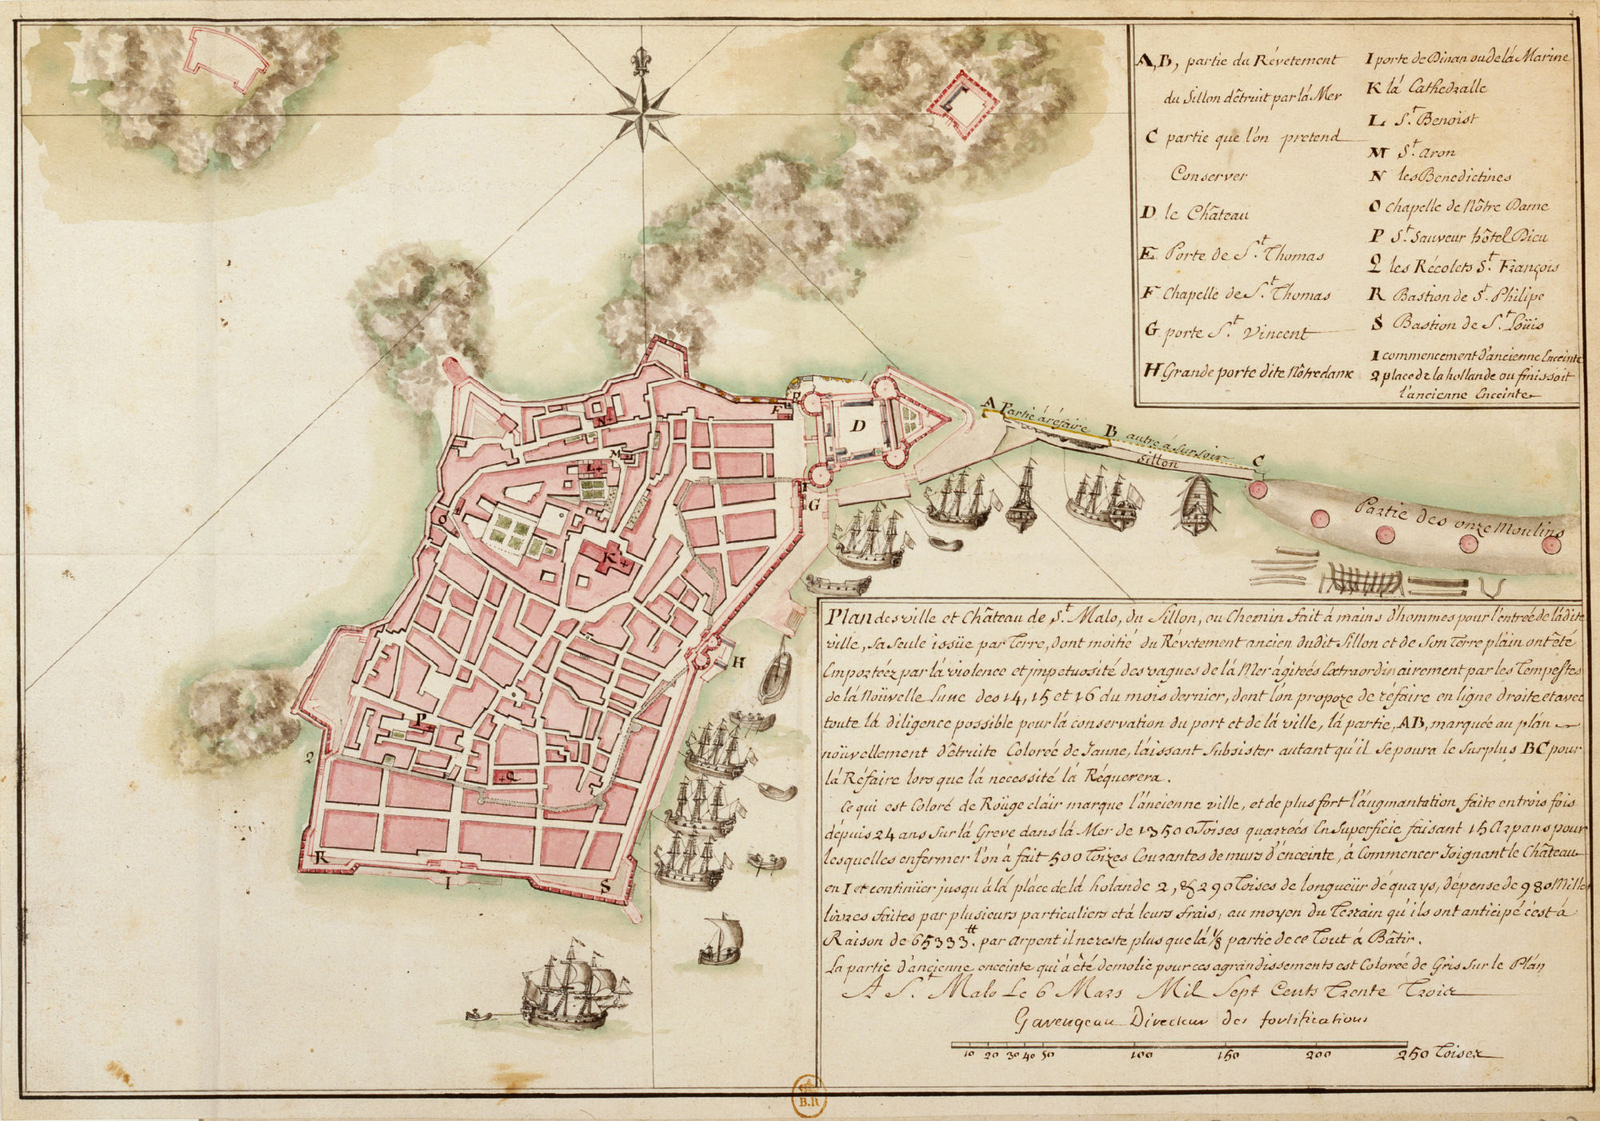 A, B, partie du Révetement
du Sillon détruit par là Mer
C partie que l'on pretend
Conserver
D le Château
E Porte de S.t Thomas
F Chapelle de S.t Thomas
G porte S.t Vincent
H Grande porte dite Nôtredame
I porte de Dinan ou de là Marine
K là Cathedralle
L S.t Benoist
M S.t Aron
N les Benedictines
O chapelle de Nôtre Dame
P S.t Sauveur hôtel Dieu
Q les Récolets S.t François
R Bastion de S.t Philipe
S Bastion de S.t Loüis
1 commencement d'ancienne Enceinte
2 place de la hollande ou finissoit
l'ancienne Enceinte
A Partie à réfaire B autre à sursoir C
Sillon
Partie des onze Moulins
D
E
F
G
H
I
K
L
M
N
O
P
Q
R
S
I
2
Plan des ville et Château de S.t Malo, du Sillon, ou Chemin fait à mains d'hommes pour l'entrée de ladite
ville, sa seule issüe par Terre, dont moitié du Révetement ancien dudit Sillon et de son Terre plain ont été
Emportéz par la violence et impetuosité des vagues de la Mer àgitées Extraordinairement par les Tempestes
de la Noüvelle Lune des 14, 15 et 16 du mois dernier, dont l'on propoze de réfaire en ligne droite et avec
toute là diligence possible pour là conservation du port et de là ville, là partie, AB, marquée au plan
noüvellement détruite Colorée de Jaune, laissant subsister autant qu'il se poura le surplus BC pour
là Réfaire lors que là necessité là Réquerera.
Ce qui est Coloré de Roüge clair marque l'ancienne ville, et de plus fort l'augmantation faite en trois fois
dépuis 24 ans sur là Greve dans là Mer de 13500 Toises quarrées En superficie faisant 15 Arpans pour
lesquelles enfermer l'on à fait 500 Toizes Courantes de murs d'enceinte, à Commencer Joignant le Château
en I et continüer jusqu'à là place de là holande 2, & 290 Toises de longueür de quays, dépense de 980 Mille
livres faites par plusieurs particuliers et à leurs frais, au moyen du Terrain qu'ils ont anticipé c'est à
Raison de 65333tt. par arpent il ne reste plus que là 1/8 partie de ce Tout à Bâtir.
La partie d'ancienne enceinte qui à été demolie pour ces agrandissements est Colorée de Gris sur le Plan
A S.t Malo Le 6 Mars Mil Sept Cents Trente Trois
Gavengeau Directeur des fortifications
10 20 30 40 50 100 150 200 250 Toises
B.R